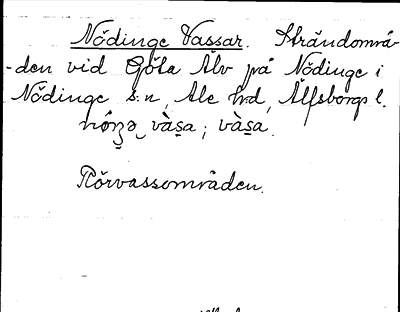 Nödinge Vassar. Strandområ-
-den vid Göta Älv på Nödinge i
Nödinge s:n, Ale hrd, Älfsborgs l.
vàsa; vàsa.
Rörvassområden.